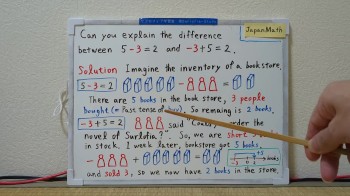 JapanMath
Can you explain the difference
between 5-3=2 and -3+5=2.
Solution Imagine the inventory of a bookstore.
5-3=2
There are 5 books in the book store, 3 people
bought (= Past tense of ). So remaing is 2 books.
-3+5=2 said "Could order the
novel of Surlofia?". So, we are short
in stock. 1 week later, bookstore got 5 books,
and sold 3, so we now have 2 books in the store.